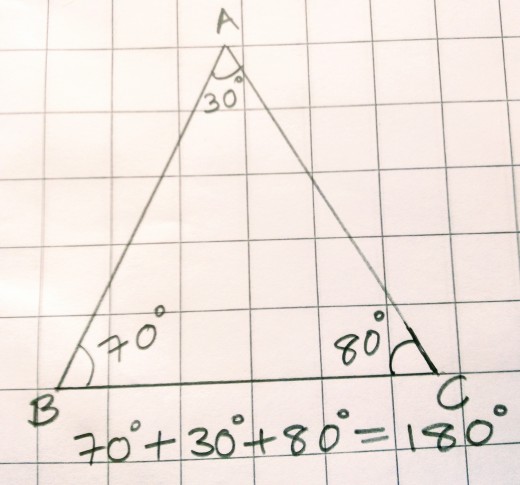 A
30°
70°
80°
B
C
70°+30°+80°=180°